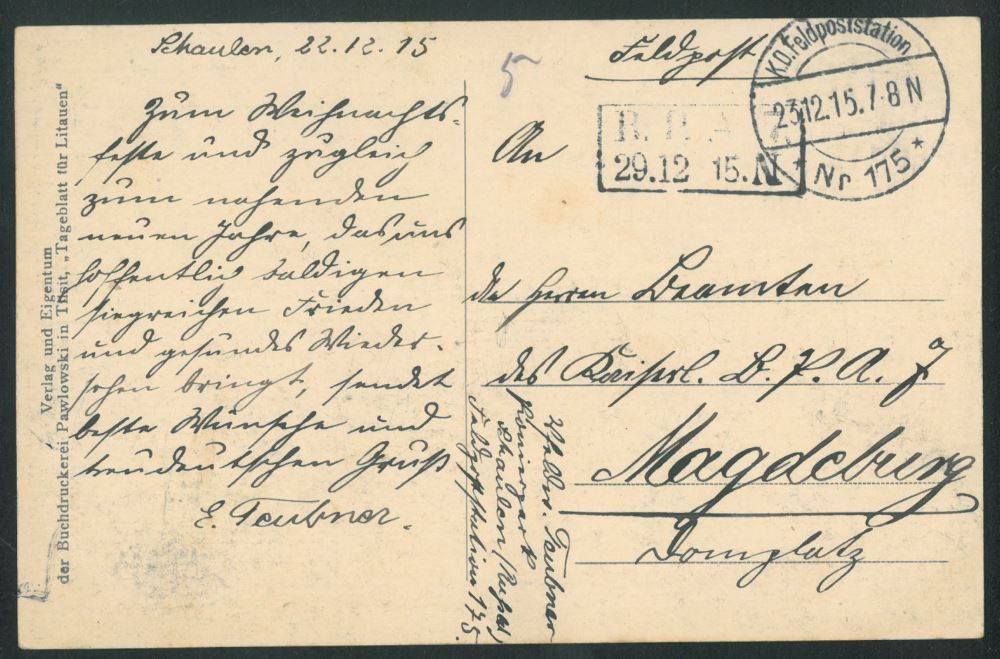 Schaulen, 22.12.15
Zum Weihnachts-
feste und zugleich
zum nahenden
neuen Jahre, das uns
hoffentlich baldigen
siegreichen Frieden
und gesundes Wieder-
sehen bringt, sendet
beste Wünsche und
treudeutschen Gruß
E. Teubner.
Verlag und Eigentum
der Buchdruckerei Pawlowski in Tilsit, „Tageblatt für Litauen"
5
Feldpost
K.D. Feldpoststation
23.12.15.7-8 N
* Nr 175 *
B. P. A. 7.
29.12 15.N
An
die Herren Beamten
des Kaiserl. B. P. A. 7
Magdeburg
Domplatz
Teubner
Schaulen
Feldpoststation 175.